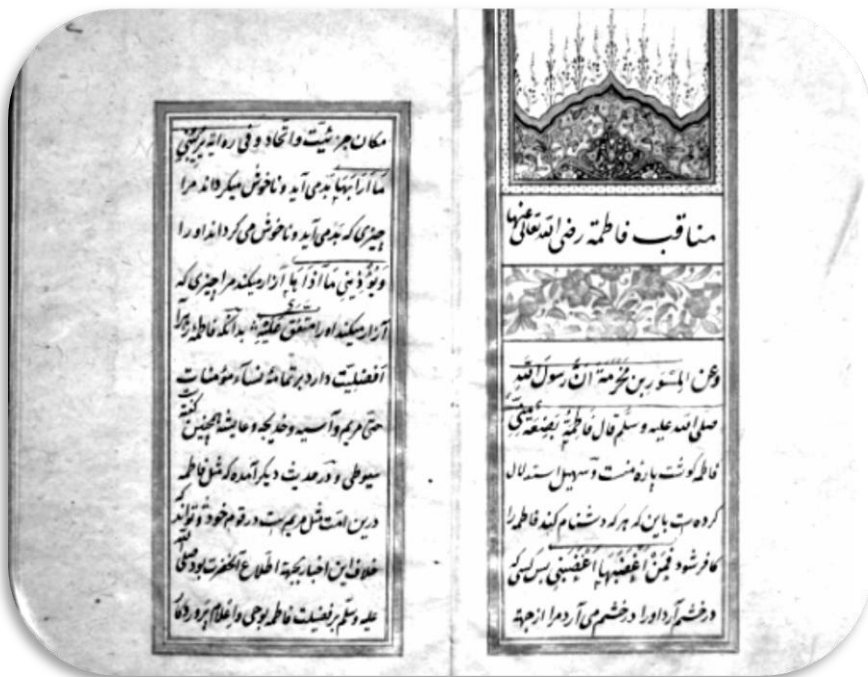 مناقب فاطمة رضی الله تعالی عنها
وعن المسور بن مخرمة ان رسول الله
صلی الله علیه وسلم قال فاطمة بضعة منی
فاطمه گوشت پاره منست و سهیل استدلال
کرده ست باین که هر که دشنام کند فاطمه را
کافر شود فمن اغضبها اغضبنی پس کسی که
در خشم آرد او را در خشم می آرد مرا از جهة
مکان جزئیت و اتحاد و فی روایة یریبنی
ما ارابها بد می آید و ناخوش میگرداند مرا
چیزی که بد می آید و ناخوش می گرداند او را
ویؤذینی ما اذاها آزار میکند مرا چیزی که
آزار میکند او را متفق علیه بدانکه فاطمه زهرا
افضلیت دارد بر تمامهٔ نساء مؤمنات
حتی مریم و آسیه و خدیجه و عایشه همچنین گفته
سیوطی و در حدیث دیگر آمده که مثل فاطمه
درین امت مثل مریم ست در قوم خود و تواند که
خلاف این اخبار بجهة اطلاع آنحضرت بود صلی الله
علیه وسلم بر فضیلت فاطمه بوحی و اعلام پروردگار